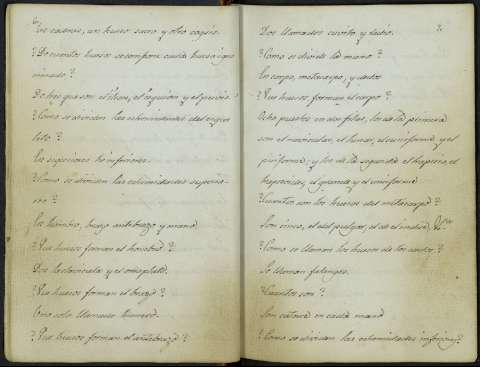 6
los caderas, un hueso sacro y otro cogsis.
¿De cuantos huesos se compone cada hueso igno
minado?
De tres que son el ileon, el isquion y el pubis.
¿Como se dividen las extremidades del esque
leto?
En superiores é inferiores.
¿Como se dividen las extremidades superio-
res?
En hombro, brazo antebrazo y mano.
¿Que huesos forman el hombro?
Dos la clavicula y el omoplato.
¿Que huesos forman el brazo?
Uno solo llamado humero.
¿Que huesos forman el antebrazo?
7
Dos llamados cubito y radio.
¿Como se divide la mano?
En carpo, metacarpo, y dedos
¿Que huesos forman el carpo?
Ocho puestos en dos filas, los de la primera
son el navicular, el lunar, el cuniforme y el
pisiforme, y los de la segunda el trapecio, el
trapezoides, el grande y el unciforme
¿Cuantos son los huesos del metacarpo?
Son cinco, el del pulgar, el de el indice, &
¿Como se llaman los huesos de los dedos?
Se llaman falanges.
¿Cuantos son?
Son catorce en cada mano
¿Como se dividen las extremidades inferiores?